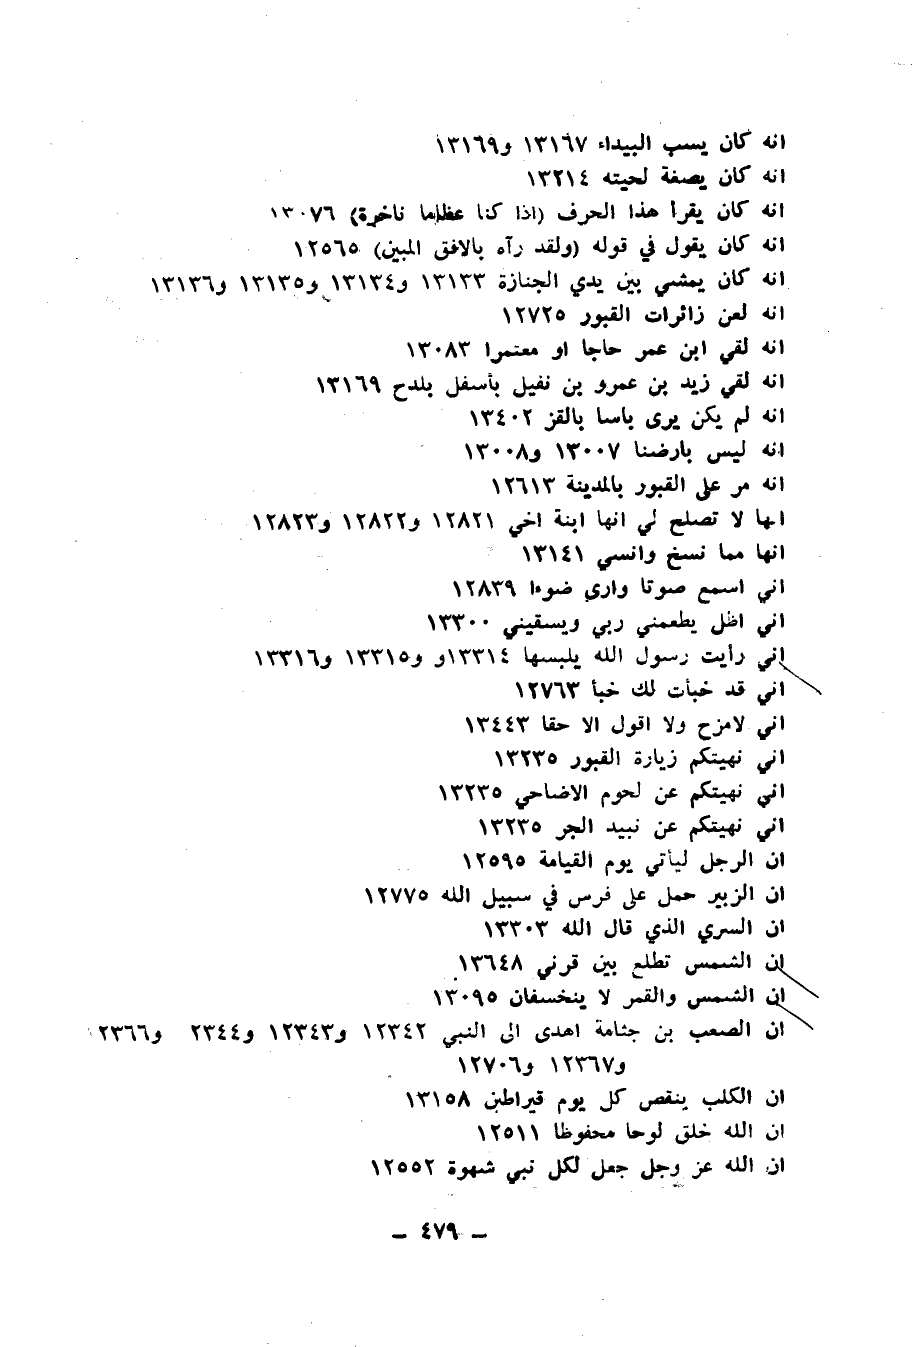 انه كان يسب البيداء ١٣١٦٧ و١٣١٦٩
انه كان يصفة لحيته ١٣٢١٤
انه كان يقرأ هذا الحرف (اذا كنا عظاما ناخرة) ١٣٠٧٦
انه كان يقول في قوله (ولقد رآه بالافق المبين) ١٢٥٦٥
انه كان يمشي بين يدي الجنازة ١٣١٣٣ و١٣١٣٤ و١٣١٣٥ و١٣١٣٦
انه لعن زائرات القبور ١٢٧٢٥
انه لقي ابن عمر حاجا او معتمرا ١٣٠٨٣
انه لقي زيد بن عمرو بن نفيل بأسفل بلدح ١٣١٦٩
انه لم يكن يرى باسا بالقز ١٣٤٠٢
انه ليس بارضنا ١٣٠٠٧ و١٣٠٠٨
انه مر على القبور بالمدينة ١٢٦١٣
انها لا تصلح لي انها ابنة اخي ١٢٨٢١ و١٢٨٢٢ و١٢٨٢٣
انها مما نسخ وانسي ١٣١٤١
اني اسمع صوتا وارى ضوءا ١٢٨٣٩
اني اظل يطعمني ربي ويسقيني ١٣٣٠٠
اني رأيت رسول الله يلبسها ١٣٣١٤و و١٣٣١٥ و١٣٣١٦
اني قد خبأت لك خبأ ١٢٧٦٣
اني لامزح ولا اقول الا حقا ١٣٤٤٣
اني نهيتكم زيارة القبور ١٣٢٣٥
اني نهيتكم عن لحوم الاضاحي ١٣٢٣٥
اني نهيتكم عن نبيد الجر ١٣٢٣٥
ان الرجل ليأتي يوم القيامة ١٢٥٩٥
ان الزبير حمل على فرس في سبيل الله ١٢٧٧٥
ان السري الذي قال الله ١٣٣٠٣
ان الشمس تطلع بين قرني ١٣٦٤٨
ان الشمس والقمر لا ينخسفان ١٣٠٩٥
ان الصعب بن جثامة اهدى الى النبي ١٢٣٤٢ و١٢٣٤٣ و٢٣٤٤ و٢٣٦٦
و١٢٣٦٧ و١٢٧٠٦
ان الكلب ينقص كل يوم قيراطين ١٣١٥٨
ان الله خلق لوحا محفوظا ١٢٥١١
ان الله عز وجل جعل لكل نبي شهوة ١٢٥٥٢
— ٤٧٩ —